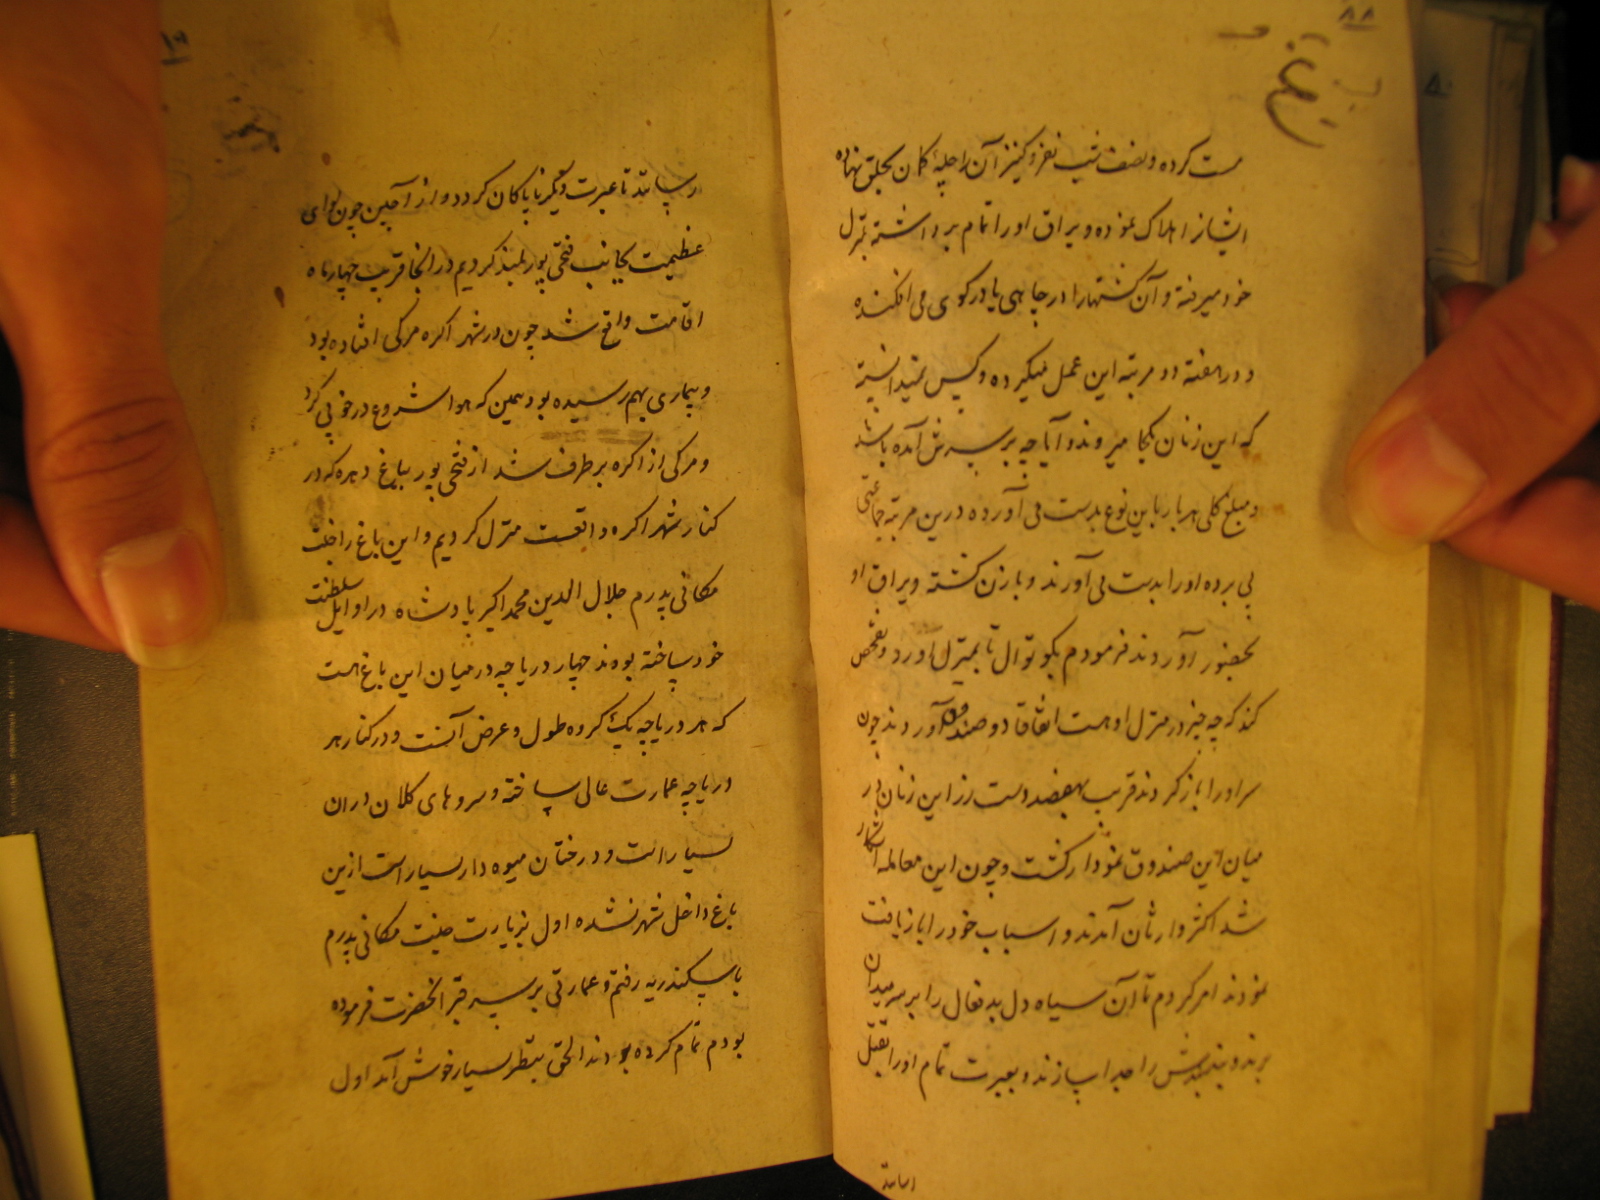 ۸۸
مست کرده و نصف شب نفر و کنیز آن را چلهٔ کمان بحلق نهاده
ایشانرا هلاک نموده و یراق او را تمام برداشته بمنزل
خود میرفته و آن کشتها را در چاهی یا در کوی می افکنده
و در هفته دو مرتبه این عمل میکرده و کس نمیدانسته
که این زنان کجا میروند و آیا چه بر سرش آمده باشد
و مبلغ کلی هر بار باین نوع بدست می آورده درین مرتبه جماعتی
پی برده او را بدست می آورند و با زن کشته و یراق او
بحضور آوردند فرمودم بکوتوال تا بمنزل او رود و تفحص
کند که چه چیز در منزل او هست اتفاقا دو صندوق آوردند چون
سر او را باز کردند قریب بهفصد دست زر این زنان در
میان این صندوق نمودار کشت و چون این معامله آشکار
شد اکثر وارثان آمدند و اسباب خود را باز یافت
نمودند امر کردم تا آن سیاه دل بد فعال را بر سر میدان
برند و بند بندش را جدا سازند و بعبرت تمام او را بقتل
رسانند
۸۹
رسانند تا عبرت دیگر ناپاکان کردد و از آنجین چون لوای
عظیمت بجانب فتحی پور بلند کردیم در آنجا قریب چهار ماه
اقامت واقع شد چون در شهر اکره مرکی افتاده بود
و بیماری بهم رسیده بود همین که هوا شروع در خوبی کرد
و مرکی از اکره بر طرف شد از فتحی پور بباغ دهره که در
کنار شهر اکره واقعست منزل کردیم و این باغ را جنت
مکانی پدرم جلال الدین محمد اکبر پادشاه در اوایل سلطنت
خود ساخته بودند چهار دریاچه در میان این باغ هست
که هر دریاچه یک کروه طول و عرض آنست و در کنار هر
دریاچه عمارت عالی ساخته و سروهای کلان در آن
بسیار است و درختان میوه دار بسیار است ازین
باغ داخل شهر نشده اول بزیارت جنت مکانی پدرم
باسکندریه رفتم و عمارتی بر سر قبر آنحضرت فرموده
بودم تمام کرده بودند الحق بنظر بسیار خوش آمد اول